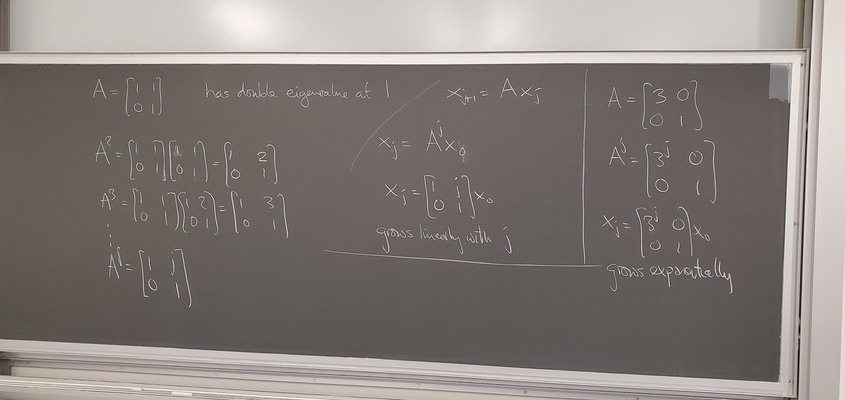 A = [1 1; 0 1] has double eigenvalue at 1
A² = [1 1; 0 1] [1 1; 0 1] = [1 2; 0 1]
A³ = [1 1; 0 1] [1 2; 0 1] = [1 3; 0 1]
⋮
Aʲ = [1 j; 0 1]
xⱼ₊₁ = A xⱼ
xⱼ = Aʲ x₀
xⱼ = [1 j; 0 1] x₀
grows linearly with j
A = [3 0; 0 1]
Aʲ = [3ʲ 0; 0 1]
xⱼ = [3ʲ 0; 0 1] x₀
grows exponentially